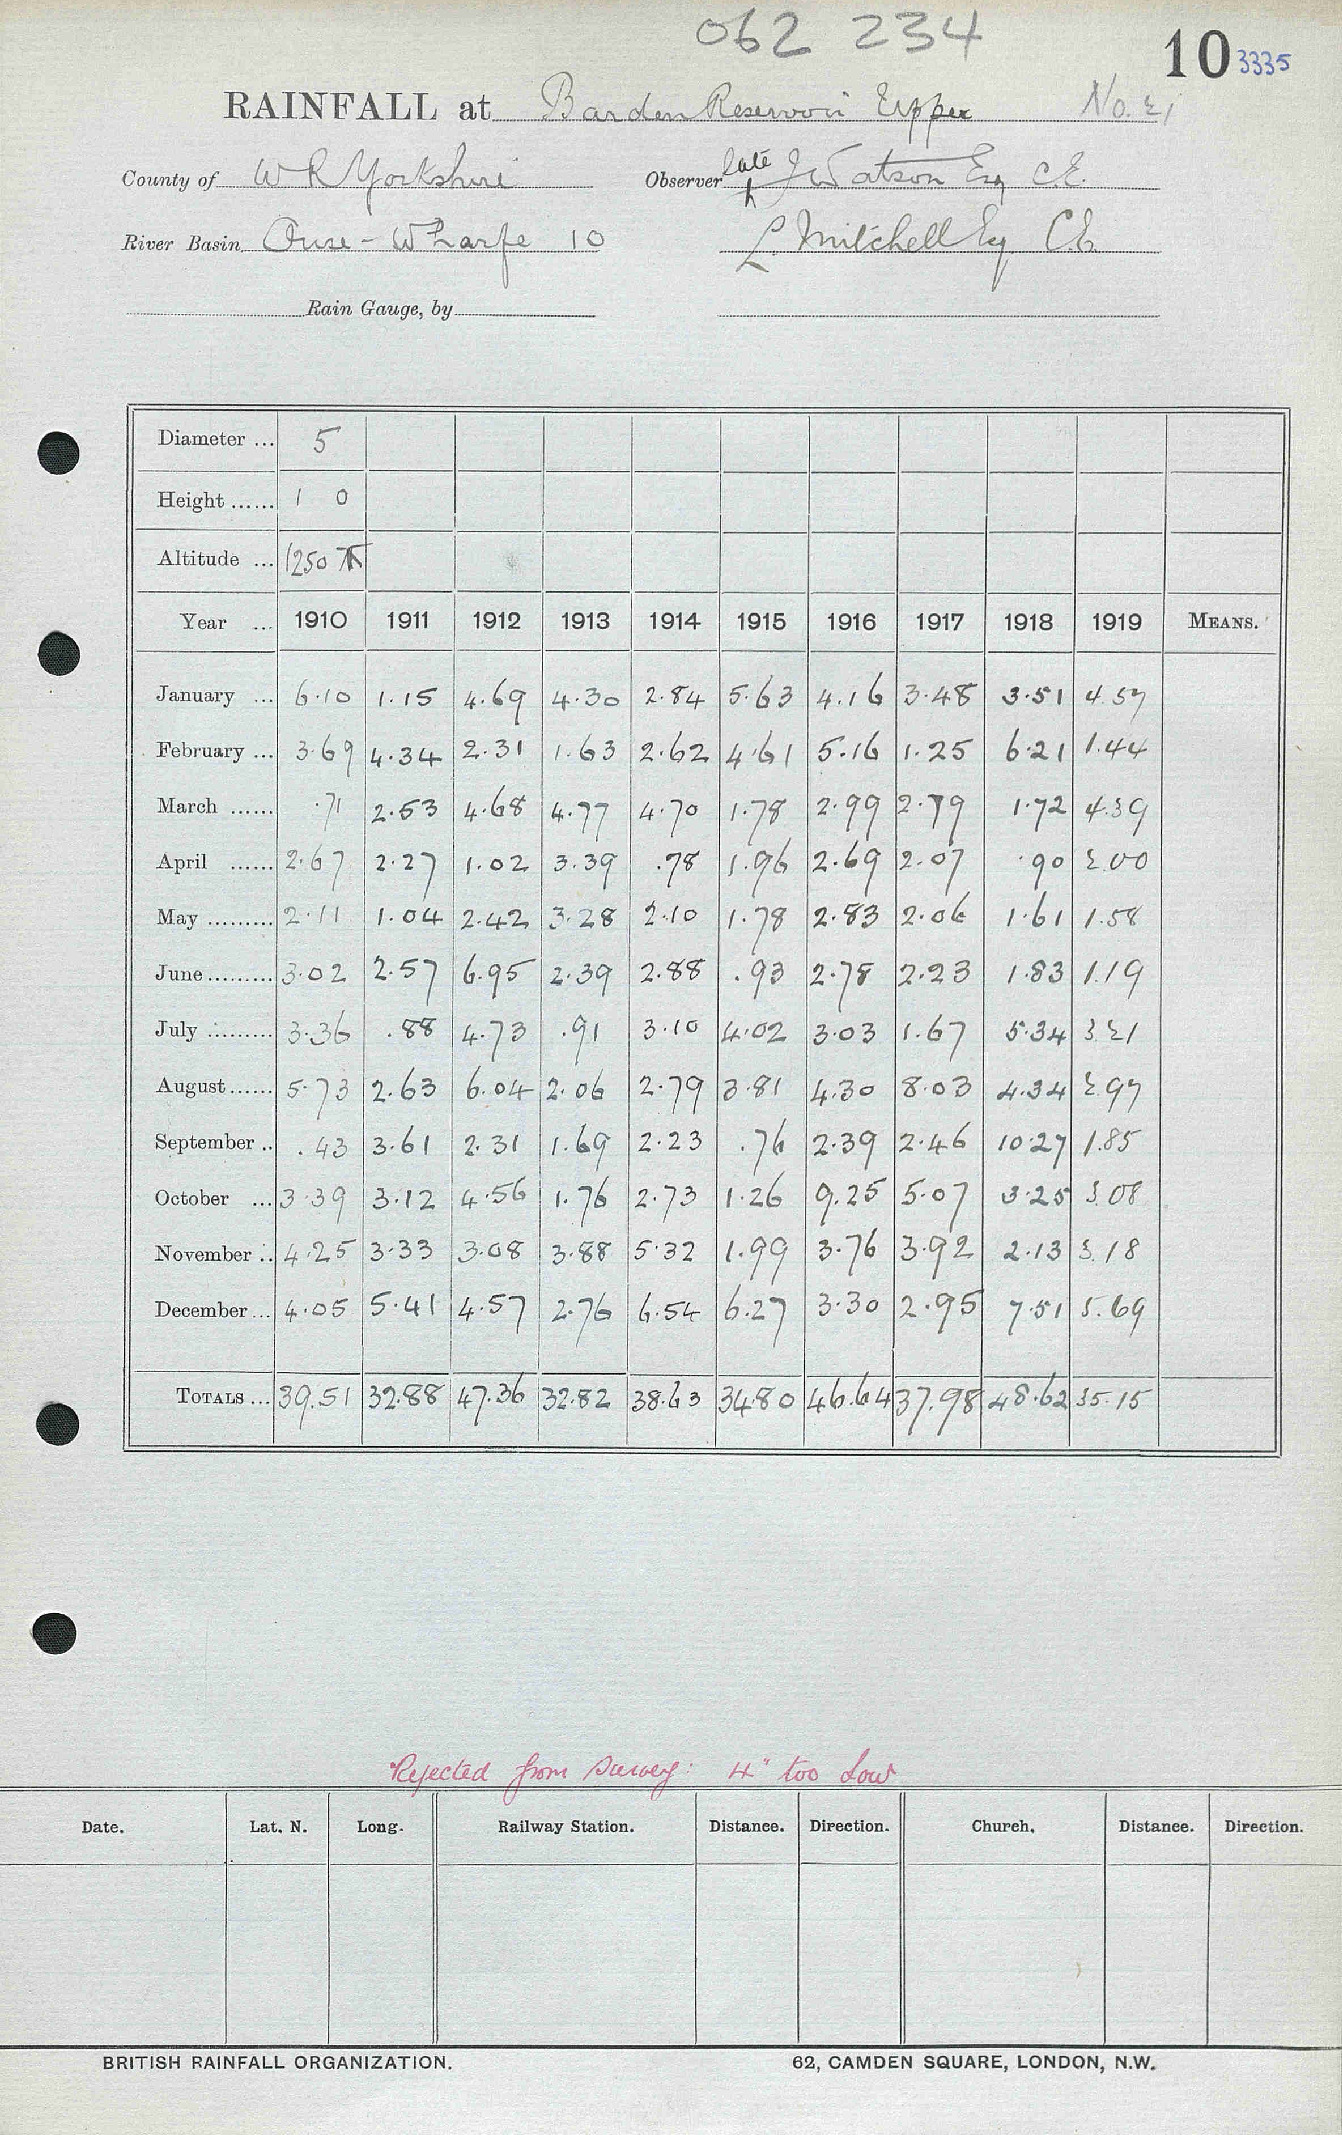 062 234
10 3335
RAINFALL at Barden Reservoir Upper No. 21
County of W R Yorkshire Observer late J Watson Esq C.E.
River Basin Ouse - Wharfe 10 L. Mitchell Esq C.E.
Rain Gauge, by
Diameter ... 5
Height ...... 1 0
Altitude ... 1250
Year ... 1910 1911 1912 1913 1914 1915 1916 1917 1918 1919 MEANS.
January ... 6.10 1.15 4.69 4.30 2.84 5.63 4.16 3.48 3.51 4.57
February ... 3.69 4.34 2.31 1.63 2.62 4.61 5.16 1.25 6.21 1.44
March ...... .71 2.53 4.68 4.77 4.70 1.78 2.99 2.79 1.72 4.39
April ...... 2.67 2.27 1.02 3.39 .78 1.96 2.69 2.07 .90 2.00
May ......... 2.11 1.04 2.42 3.28 2.10 1.78 2.83 2.06 1.61 1.58
June ......... 3.02 2.57 6.95 2.39 2.88 .93 2.78 2.23 1.83 1.19
July ......... 3.36 .88 4.73 .91 3.10 4.02 3.03 1.67 5.34 3.21
August ...... 5.73 2.63 6.04 2.06 2.79 3.81 4.30 8.03 4.34 2.97
September .. .43 3.61 2.31 1.69 2.23 .76 2.39 2.46 10.27 1.85
October ... 3.39 3.12 4.56 1.76 2.73 1.26 9.25 5.07 3.25 3.08
November .. 4.25 3.33 3.08 3.88 5.32 1.99 3.76 3.92 2.13 3.18
December ... 4.05 5.41 4.57 2.76 6.54 6.27 3.30 2.95 7.51 5.69
TOTALS ... 39.51 32.88 47.36 32.82 38.63 34.80 46.64 37.98 48.62 35.15
Rejected from Survey: 4" too low
Date. Lat. N. Long. Railway Station. Distance. Direction. Church. Distance. Direction.
BRITISH RAINFALL ORGANIZATION. 62, CAMDEN SQUARE, LONDON, N.W.